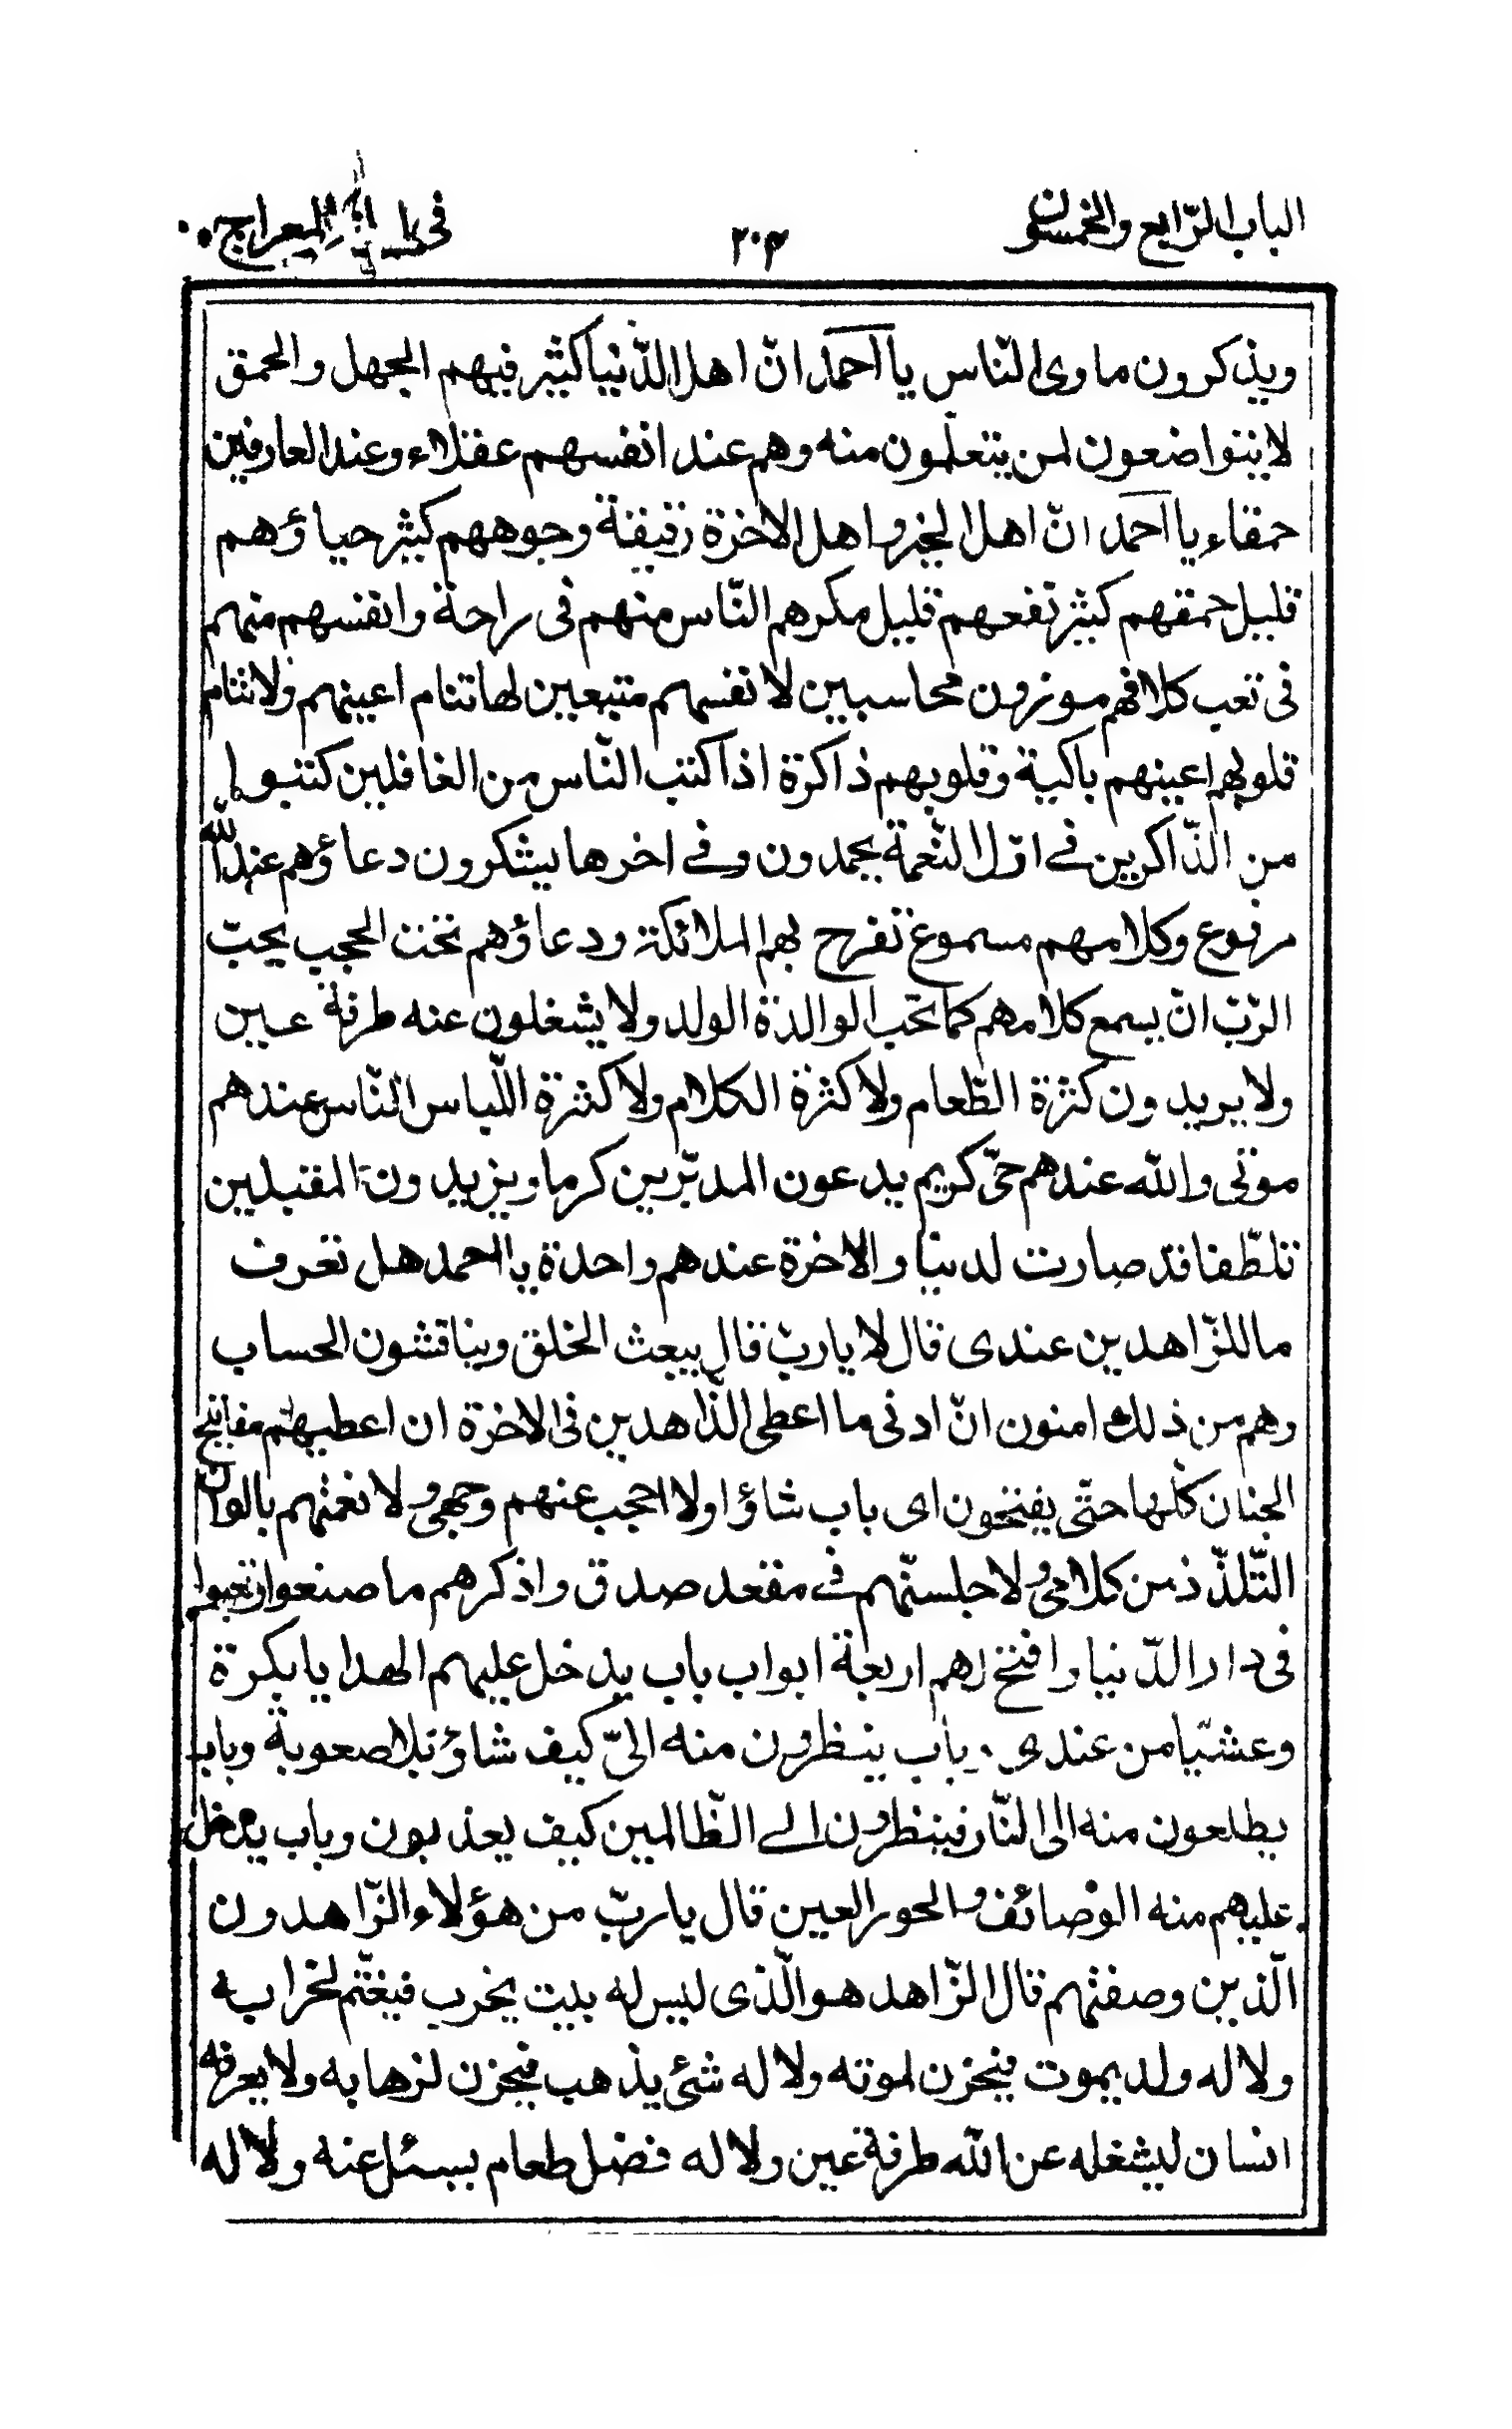 الباب الرّابع والخمسون
٢٠٣
فى المعراج
ويذكرون مساوى النّاس يا احمد انّ اهل الدّنيا كثير فيهم الجهل والحمق
لا يتواضعون لمن يتعلّمون منه وهم عند انفسهم عقلاء وعند العارفين
حمقاء يا احمد انّ اهل الخير واهل الاخرة رقيقة وجوههم كثير حياؤهم
قليل حمقهم كثير نفعهم قليل مكرهم النّاس منهم فى راحة وانفسهم منهم
فى تعب كلامهم موزون محاسبين لانفسهم متبعين لها تنام اعينهم ولا تنام
قلوبهم اعينهم باكية وقلوبهم ذاكرة اذا كتب النّاس من الغافلين كتبوا
من الذّاكرين فے اوّل النّعمة يحمدون وفے اخرها يشكرون دعاؤهم عند الله
مرفوع وكلامهم مسموع تفرح بهم الملائكة ودعاؤهم تحت الحجب يحبّ
الرّبّ انّ يسمع كلامهم كما تحبّ الوالدة الولد ولا يشغلون عنه طرفة عين
ولا يريدون كثرة الطّعام ولا كثرة الكلام ولا كثرة اللّباس النّاس عندهم
موتى والله عندهم حىّ كريم يدعون المدبّرين كرما ويزيدون المقبلين
تلطّفا قد صارت لدنيا والاخرة عندهم واحدة يا احمد هل تعرف
ما للزّاهدين عندى قال لا يا ربّ قال يبعث الخلق ويناقشون الحساب
وهم من ذلك امنون انّ ادنى ما اعطى الذّاهدين فى الاخرة ان اعطيهم مفاتيح
الجنان كلّها حتّى يفتحون اى باب شاؤا ولا احجب عنهم وجهى ولا نعمتهم بالوان
التّلذّذ من كلامى ولاجلسنّهم فے مقعد صدق واذكرهم ما صنعوا وتعبوا
فى دار الدّنيا وافتح لهم اربعة ابواب باب يدخل عليهم الهدايا بكرة
وعشيّا من عندى وباب ينظرون منه الىّ كيف شاؤ بلا صعوبة وباب
يطلعون منه الى النّار فينظرون الے الظّالمين كيف يعذبون وباب يدخل
عليهم منه الوصائف والحور العين قال يا ربّ من هؤلاء الزّاهدون
الّذين وصفتهم قال الزّاهد هو الّذى ليس له بيت يخرب فيغتّم لخرابه
ولا له ولد يموت فيحزن لموته ولا له شئ يذهب فيحزن لذهابه ولا يعرفه
انسان ليشغله عن الله طرفة عين ولا له فضل طعام يسئل عنه ولا له